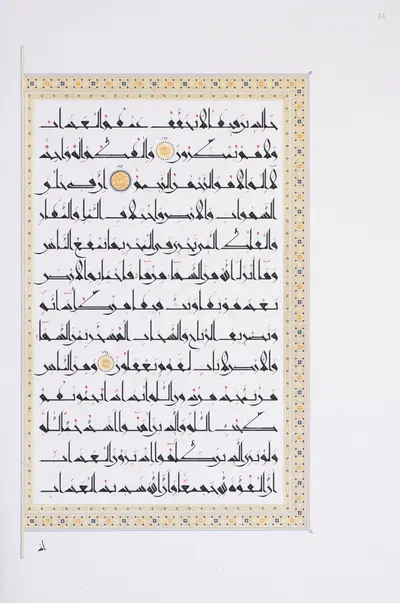 خالدين فيها لا يخفف عنهم العذاب
ولا هم ينظرون والهكم اله واحد
لا اله الا هو الرحمن الرحيم ان في خلق
السموات والارض واختلاف اليل والنهار
والفلك التي تجري في البحر بما ينفع الناس
وما انزل الله من السماء من ماء فاحيا به الارض
بعد موتها وبث فيها من كل دابة
وتصريف الرياح والسحاب المسخر بين السماء
والارض لايات لقوم يعقلون ومن الناس
من يتخذ من دون الله اندادا يحبونهم
كحب الله والذين امنوا اشد حبا لله
ولو يرى الذين ظلموا اذ يرون العذاب
ان القوة لله جميعا وان الله شديد العذاب
اذ